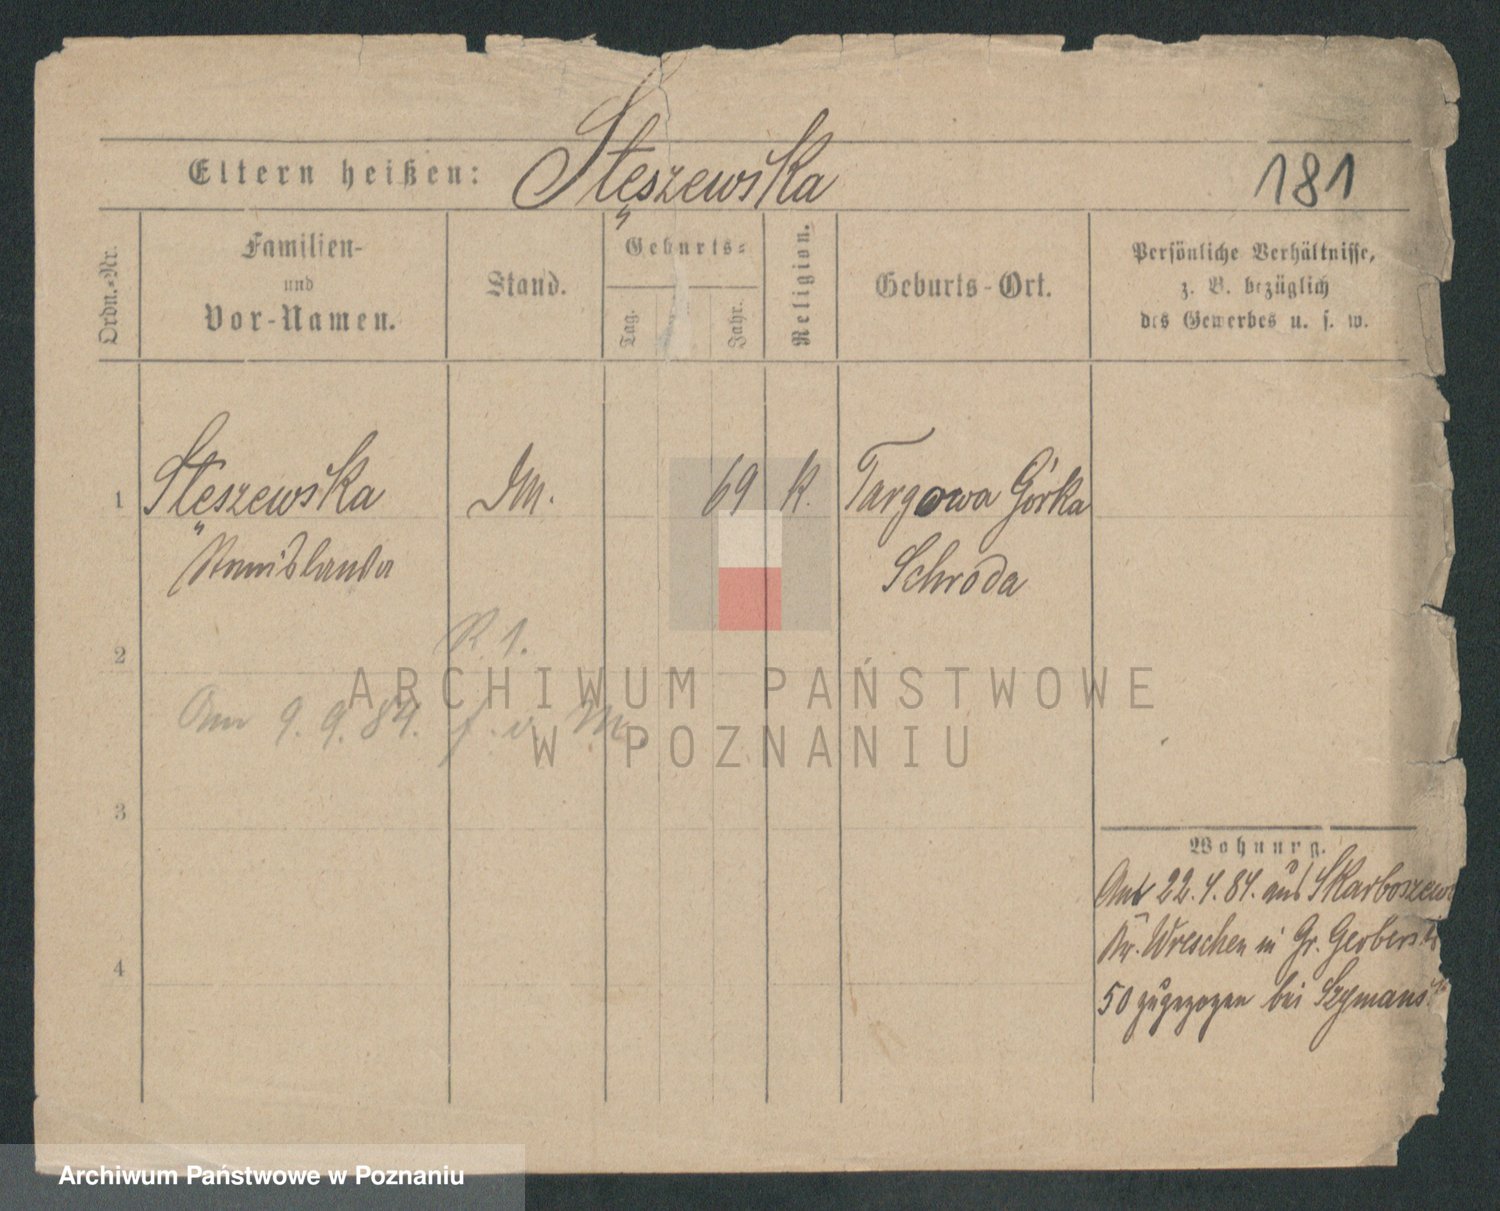 Eltern heißen: Stęszewska
181
Ordn.-Nr.
Familien-
und
Vor-Namen.
Stand.
Geburts-
Tag.
Jahr.
Religion.
Geburts-Ort.
Persönliche Verhältnisse,
z. B. bezüglich
des Gewerbes u. s. w.
1 Stęszewska DM. 69 K. Targowa Górka
Stanislawa Schroda
R. 1.
2
Am 9. 9. 84. f. v. M.
ARCHIWUM PAŃSTWOWE
W POZNANIU
3
Wohnung.
22. 4. 84. aus Skarboszewo
Kr. Wreschen in Gr. Gerberstr
4
50 zugezogen bei Szymansk
Archiwum Państwowe w Poznaniu